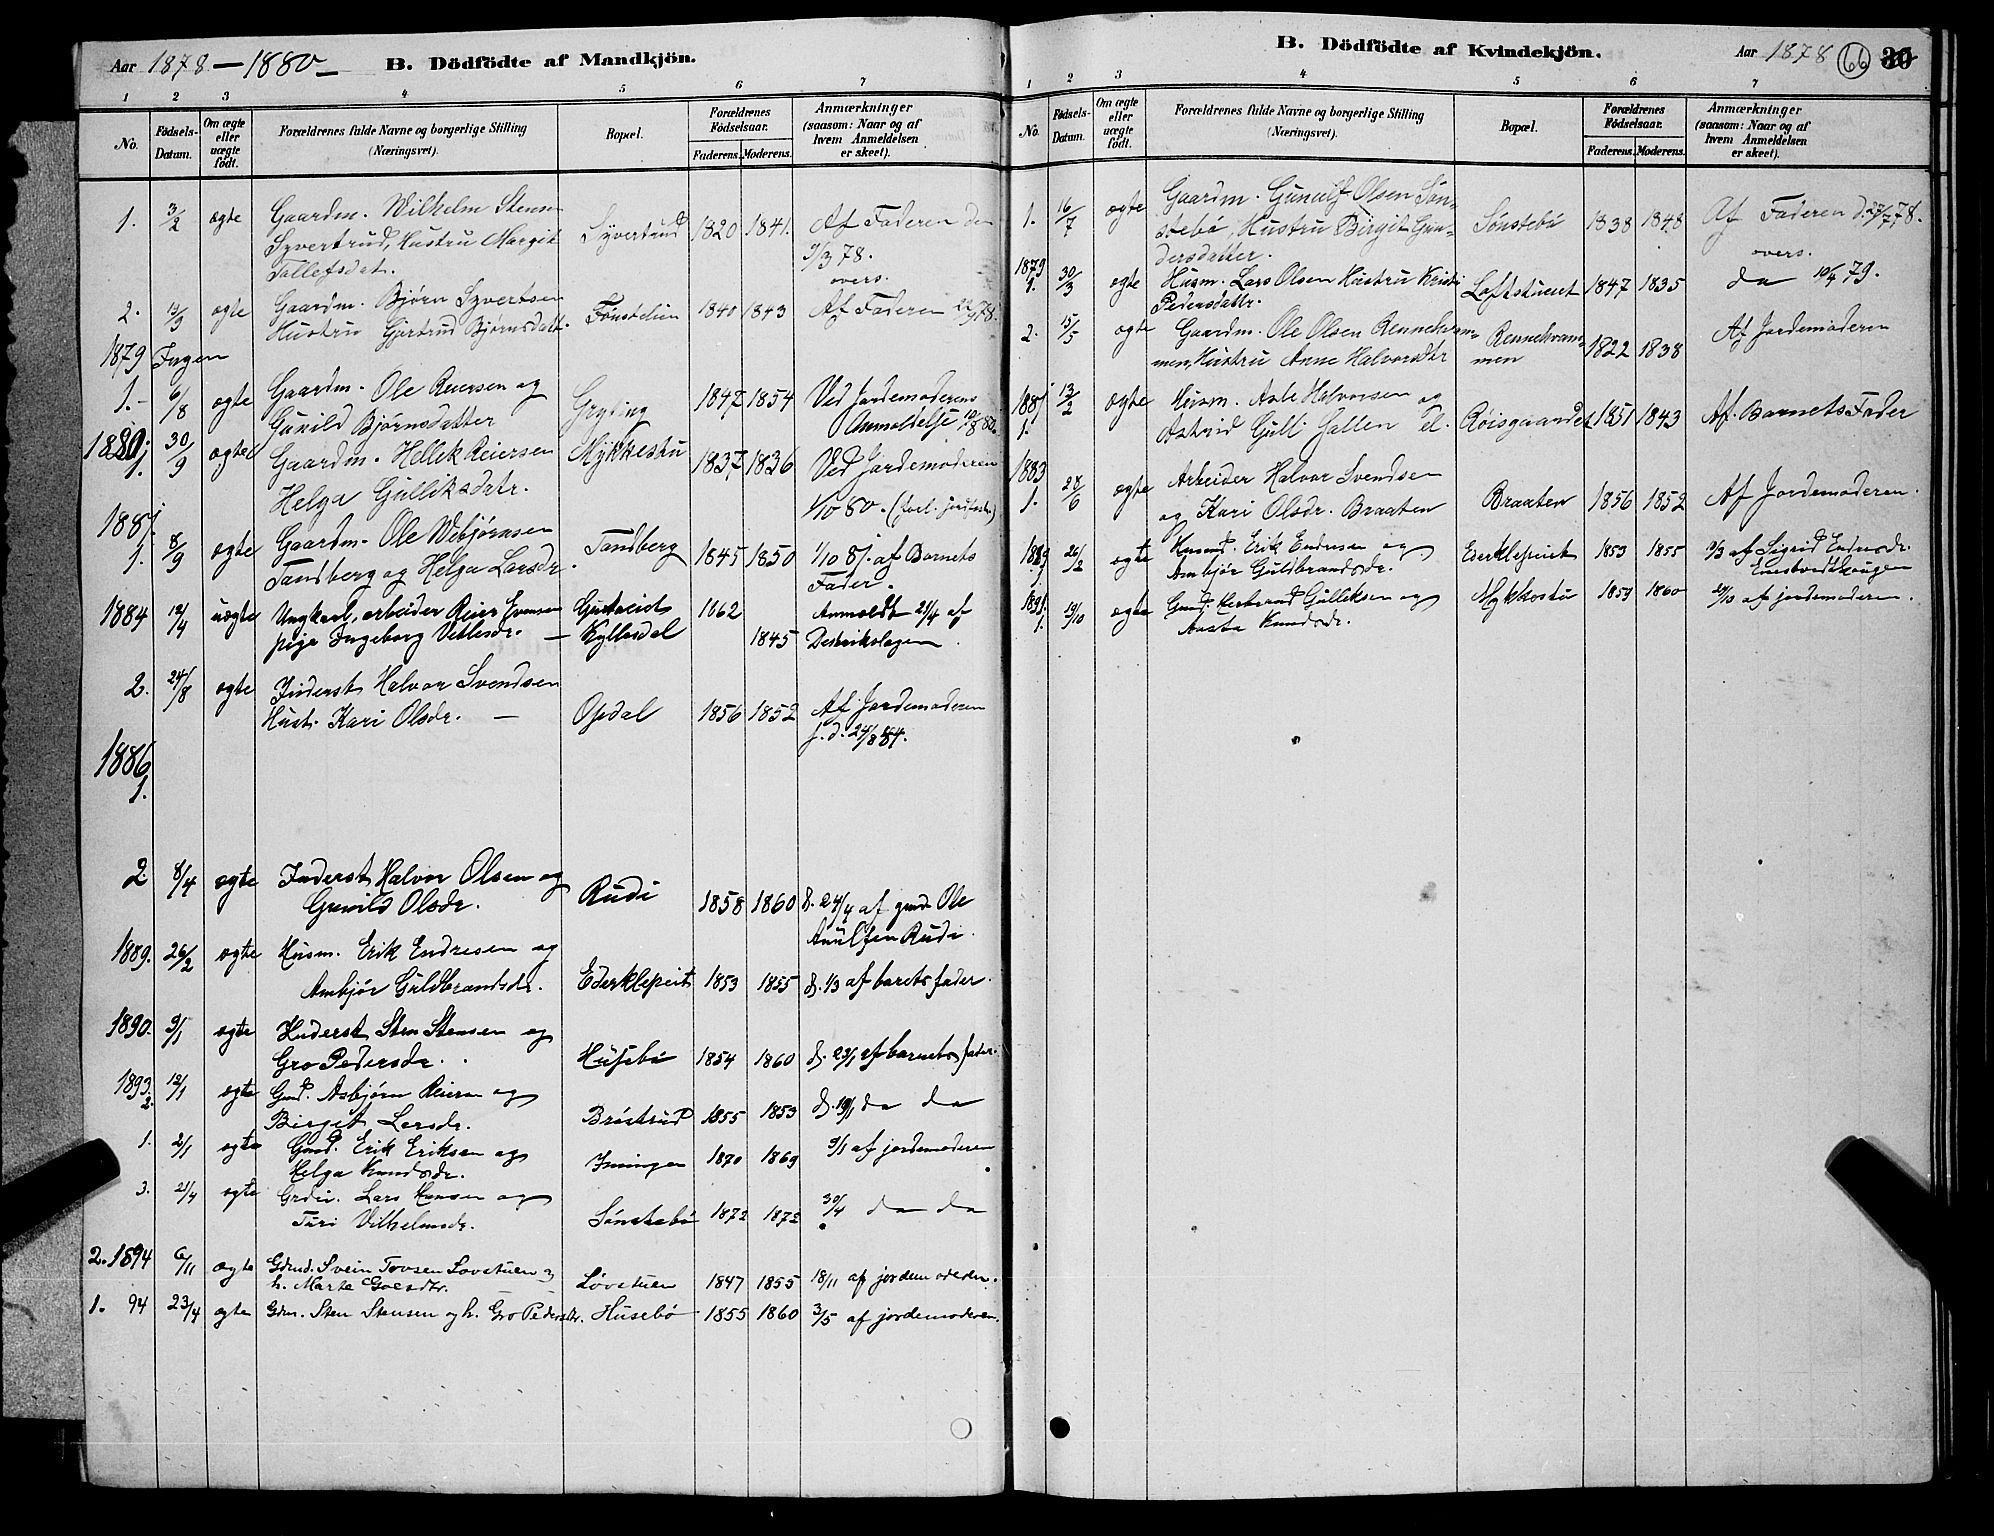 Aar 1878-1880_ B. Dödfödte af Mandkjön.
1 2 3 4 5 6 7
No. Födsels-Datum. Om ægte eller uægte födt. Forældrenes fulde Navne og borgerlige Stilling (Næringsvei). Bopæl. Forældrenes Födselsaar. Faderens. Moderens. Anmærkninger (saasom: Naar og af hvem Anmeldelsen er skeet).
1. 3/2 ægte Gaardm. Wilhelm Stensen Syvertrud 1820 1841. Af Faderen den
Syvertrud, Hustru Margit 9/3 78.
Tollefsdat. overs.
2. 13/3 ægte Gaardm. Bjørn Syvertsen 1840 1843 Af Faderen
Hustru Gjertrud Bjørnsdatt.
1879 Ingen
1.- 6/8 ægte Gaardm. Ole Reiersen og Gryting 1847 1854 Ved Jordemoderens
Gunild Bjørnsdatter Anmeldelse 10/8 80.
1880 1. 30/9 ægte Gaardm. Hellek Reiersen Mykkestu 1837 1836 Ved Jordemoderen
Helga Gulliksdatr. 1/10 80.
1881. 1. 8/9 ægte Gaardm. Ole Webjørnsen Tandberg 1845 1850 1/10 81. af Barnets
Tandberg og Helga Larsdr. Fader.
1884 12/4 uægte Ungkarl, arbeider Reier Evensen 1862 Anmeldt 21/4 af
pige Ingeborg Vetlesdr. — Kyllesdal 1845 Distriktslægen.
2. 24/8 ægte Inderst Halvor Svendsen
Hust. Kari Olsdr. — Opdal 1856 1852 Af Jordemoderen
s. d. 24/8 84.
1886
1.
2 8/4 ægte Inderst Halvor Olsen og Rudi 1858 1860 d. 24/4 af gmd. Ole
Gunild Olsdr. Anulfsen Rudi.
1889. 26/2 ægte Husm. Erik Endresen og
Ambjør Guldbrandsdr. Ederklepeit 1853 1855 d. 1/3 af barnets fader.
1890. 9/1 ægte Inderst Sten Stensen og
Gro Pedersdr. Husebø 1854 1860 d. 23/1 af barnets fader.
1893. 2. 12/1 ægte Gmd. Asbjørn Reiersen og
Birgit Larsdr. Brøstrud 1855 1853 d. 19/1 da da
1. 2/1 ægte Gmd. Erik Eriksen og
Helga Knudsdr. 1870 1869 9/1 af jordemoderen
3. 21/4 ægte Lars Hansen og
Turi Vilhelmsdr. Sønstebø 1872 1872 30/4 da da
2. 1894 6/11 ægte Gdmd. Svein Tovsen Lovstuen og
h. Marte Løvstuen 1847 1855 18/11 af jordemoderen.
1. 94 23/4 ægte Gdm. Sten Stensen og h. Gro Pedersdr. Husebø 1855 1860 3/5 af jordemoderen.
B. Dödfödte af Kvindekjön. Aar 1878 66 30
1 2 3 4 5 6 7
No. Födsels-Datum. Om ægte eller uægte födt. Forældrenes fulde Navne og borgerlige Stilling (Næringsvei). Bopæl. Forældrenes Födselsaar. Faderens. Moderens. Anmærkninger (saasom: Naar og af hvem Anmeldelsen er skeet).
1. 16/7 ægte Gaardm. Gunulf Olsen Søn-
stebø, Hustru Birgit Gun- Sønstebø 1838 1848 Af Faderen d. 27/7 78.
dersdatter. overs.
1879 1. 30/3 ægte Husm. Lars Olsen Hustru Kristi Loftstueiet 1847 1835 da 10/4 79.
Pedersdattr.
2. 15/5 ægte Gaardm. Ole Olsen Rennehvam- Rennehvam- 1822 1838 Af Jordemoderen
men, Hustru Anne Halvorsdtr men
1881 1. 13/2 ægte Husm. Asle Halvorsen og
Astrid 1851 1843 Af Barnets Fader
1883 1. 28/6 ægte Arbeider Halvor Svendsen
og Kari Olsdr. Braaten Braaten 1856 1852 Af Jordemoderen.
1889 26/2 ægte Husmd. Erik Endresen og Ederklepeit 1853 1855 9/3 af Sigrid Endresdr.
Ambjør Guldbrandsdr.
1891. 1. 19/10 ægte Gmd. Herbrand Gulliksen og Mykkestu 1859 1860 20/10 af jordemoderen.
Aasta Knudsdr.